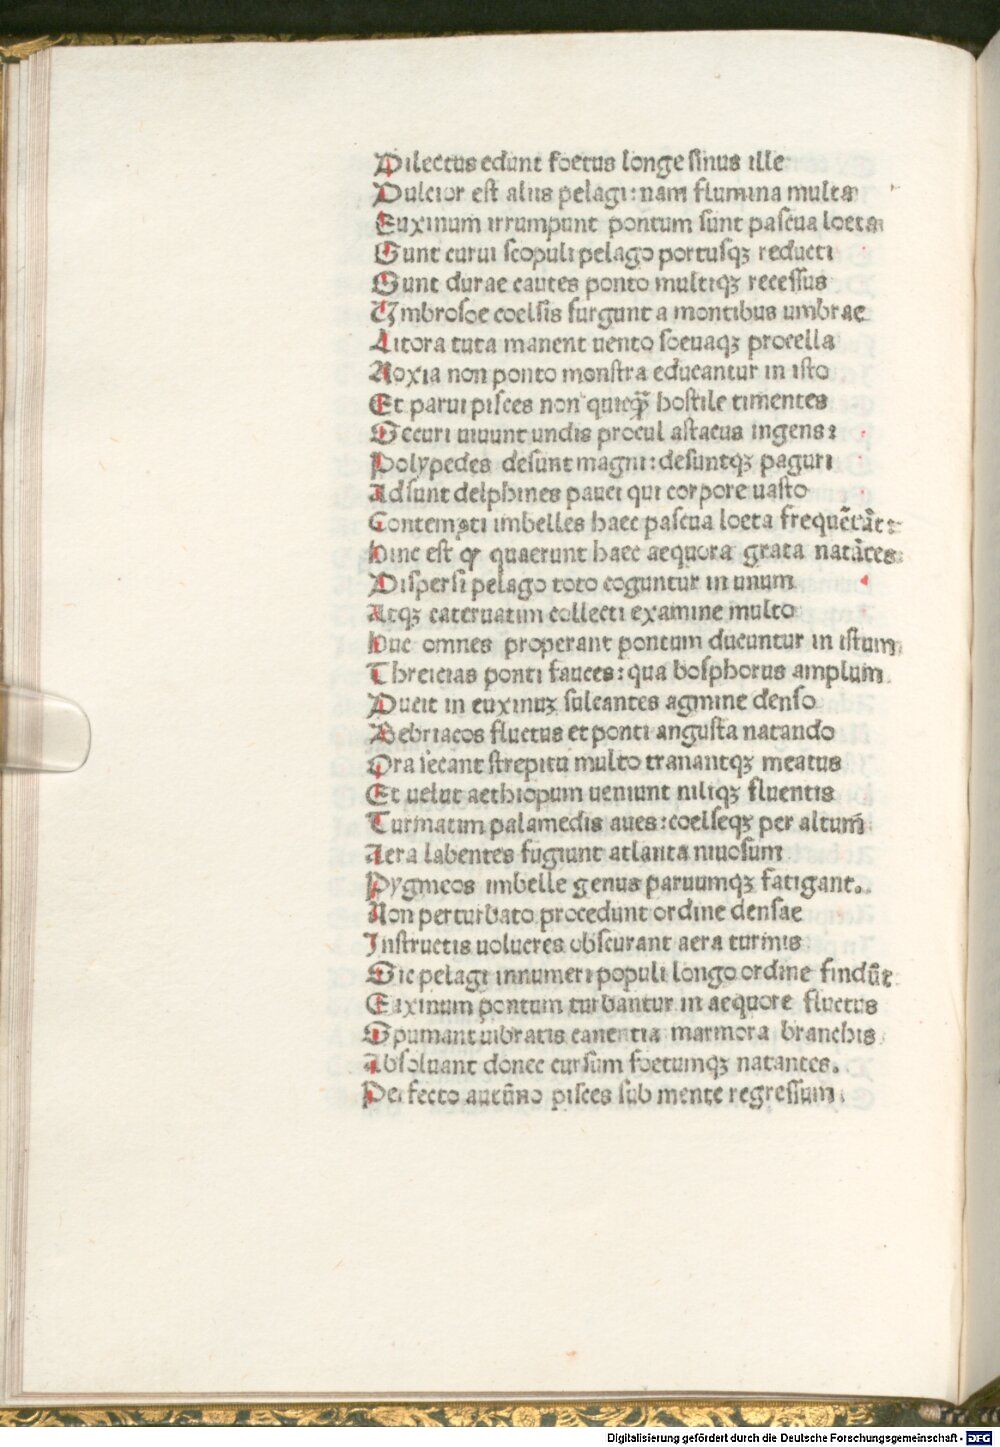 Dilectus edunt foetus longe sinus ille
Dulcior est aliis pelagi: nam flumina multa
Euxinum irrumpunt pontum sunt pascua loeta
Sunt curui scopuli pelago portusqꝫ reducti
Sunt durae cautes ponto multiqꝫ recessus
Vmbrosoe coelsis surgunt a montibus umbrae
Litora tuta manent uento soeuaqꝫ procella
Noxia non ponto monstra educantur in isto
Et parui pisces non quicq̃ hostile timentes
Securi uiuunt undis procul astacus ingens:
Polypedes desunt magni: desuntqꝫ paguri
Adsunt delphines pauci qui corpore uasto
Contempti imbelles haec pascua loeta frequẽtãt:
hinc est ꝙ quaerunt haec aequora grata natãtes
Dispersi pelago toto coguntur in unum
Atqꝫ cateruatim collecti examine multo
huc omnes properant pontum ducuntur in istum
Threicias ponti fauces: qua bosphorus amplum
Ducit in euxinuꝫ sulcantes agmine denso
Bebriacos fluctus et ponti angusta natando
Ora secant strepitu multo tranantqꝫ meatus
Et uelut aethiopum ueniunt niliqꝫ fluentis
Turmatim palamedis aues: coelseqꝫ per altum̃
Aera labentes fugiunt atlanta niuosum
Pygmeos imbelle genus paruumqꝫ fatigant.
Non perturbato procedunt ordine densae
Instructis uolucres obscurant aera turmis
Sic pelagi innumeri populi longo ordine findũt
Euxinum pontum turbantur in aequore fluctus
Spumant uibratis canentia marmora branchis
Absoluant donec cursum foetumqꝫ natantes.
Perfecto autũno pisces sub mente regressum
Digitalisierung gefördert durch die Deutsche Forschungsgemeinschaft - DFG